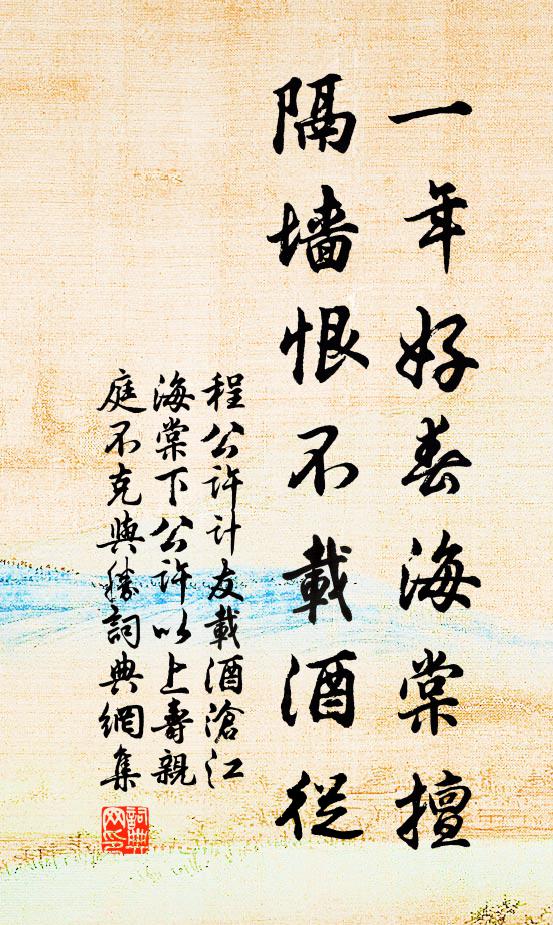 一年好春海棠擅
隔墙恨不載酒從
程公許计友載酒滄江
海棠下公許以上壽親
庭不克與勝詞典網集
詞典网印